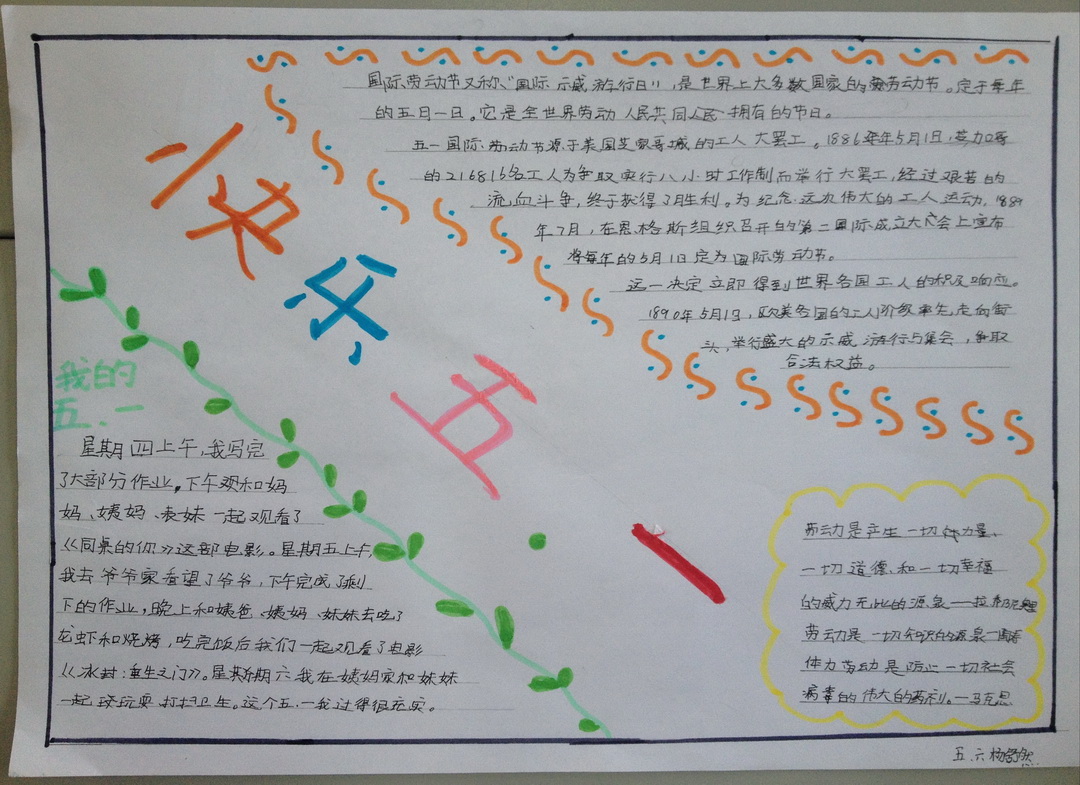 国际劳动节又称"国际示威游行日",是世界上大多数国家的劳动节。定于每年
的五日一日。它是全世界劳动人民共同人民拥有的节日。
五一国际劳动节源于美国芝家哥城的工人大罢工。1886年5月1日,芝加哥
的216816名工人为争取实行八小时工作制而举行大罢工,经过艰苦的
流血斗争,终于获得了胜利。为纪念这次伟大的工人运动,1889
年7月,在恩格斯组织召开的第二国际成立大会上宣布
将每年的5月1日定为国际劳动节。
这一决定立即得到世界各国工人的积极响应。
1890年5月1日,欧美各国的工人阶级率先走向街
头,举行盛大的示威游行与集会,争取
合法权益。
快乐五·一
我的
五.一
星期四上午,我写完
了大部分作业,下午观和妈
妈、姨妈、表妹一起观看了
《同桌的你》这部电影。星期五上午,
我去爷爷家看望了爷爷,下午完成了剩
下的作业,晚上和姨爸、姨妈、妹妹去吃了
龙虾和烧烤,吃完饭后我们一起观看了电影
《冰封:重生之门》。星期六我在姨妈家和妹妹
一起玩耍打扫卫生。这个五.一我过得很充实。
劳动是产生一切力量、
一切道德和一切幸福
的威力无比的源泉——拉·乔乃尼奥里
劳动是一切知识的源泉—陶铸
体力劳动是防止一切社会
病毒的伟大的药剂。—马克思
五.六 杨舒然